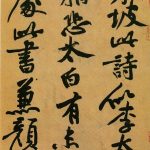 坡此詩似李太
猶恐太白有未
處此書兼顏